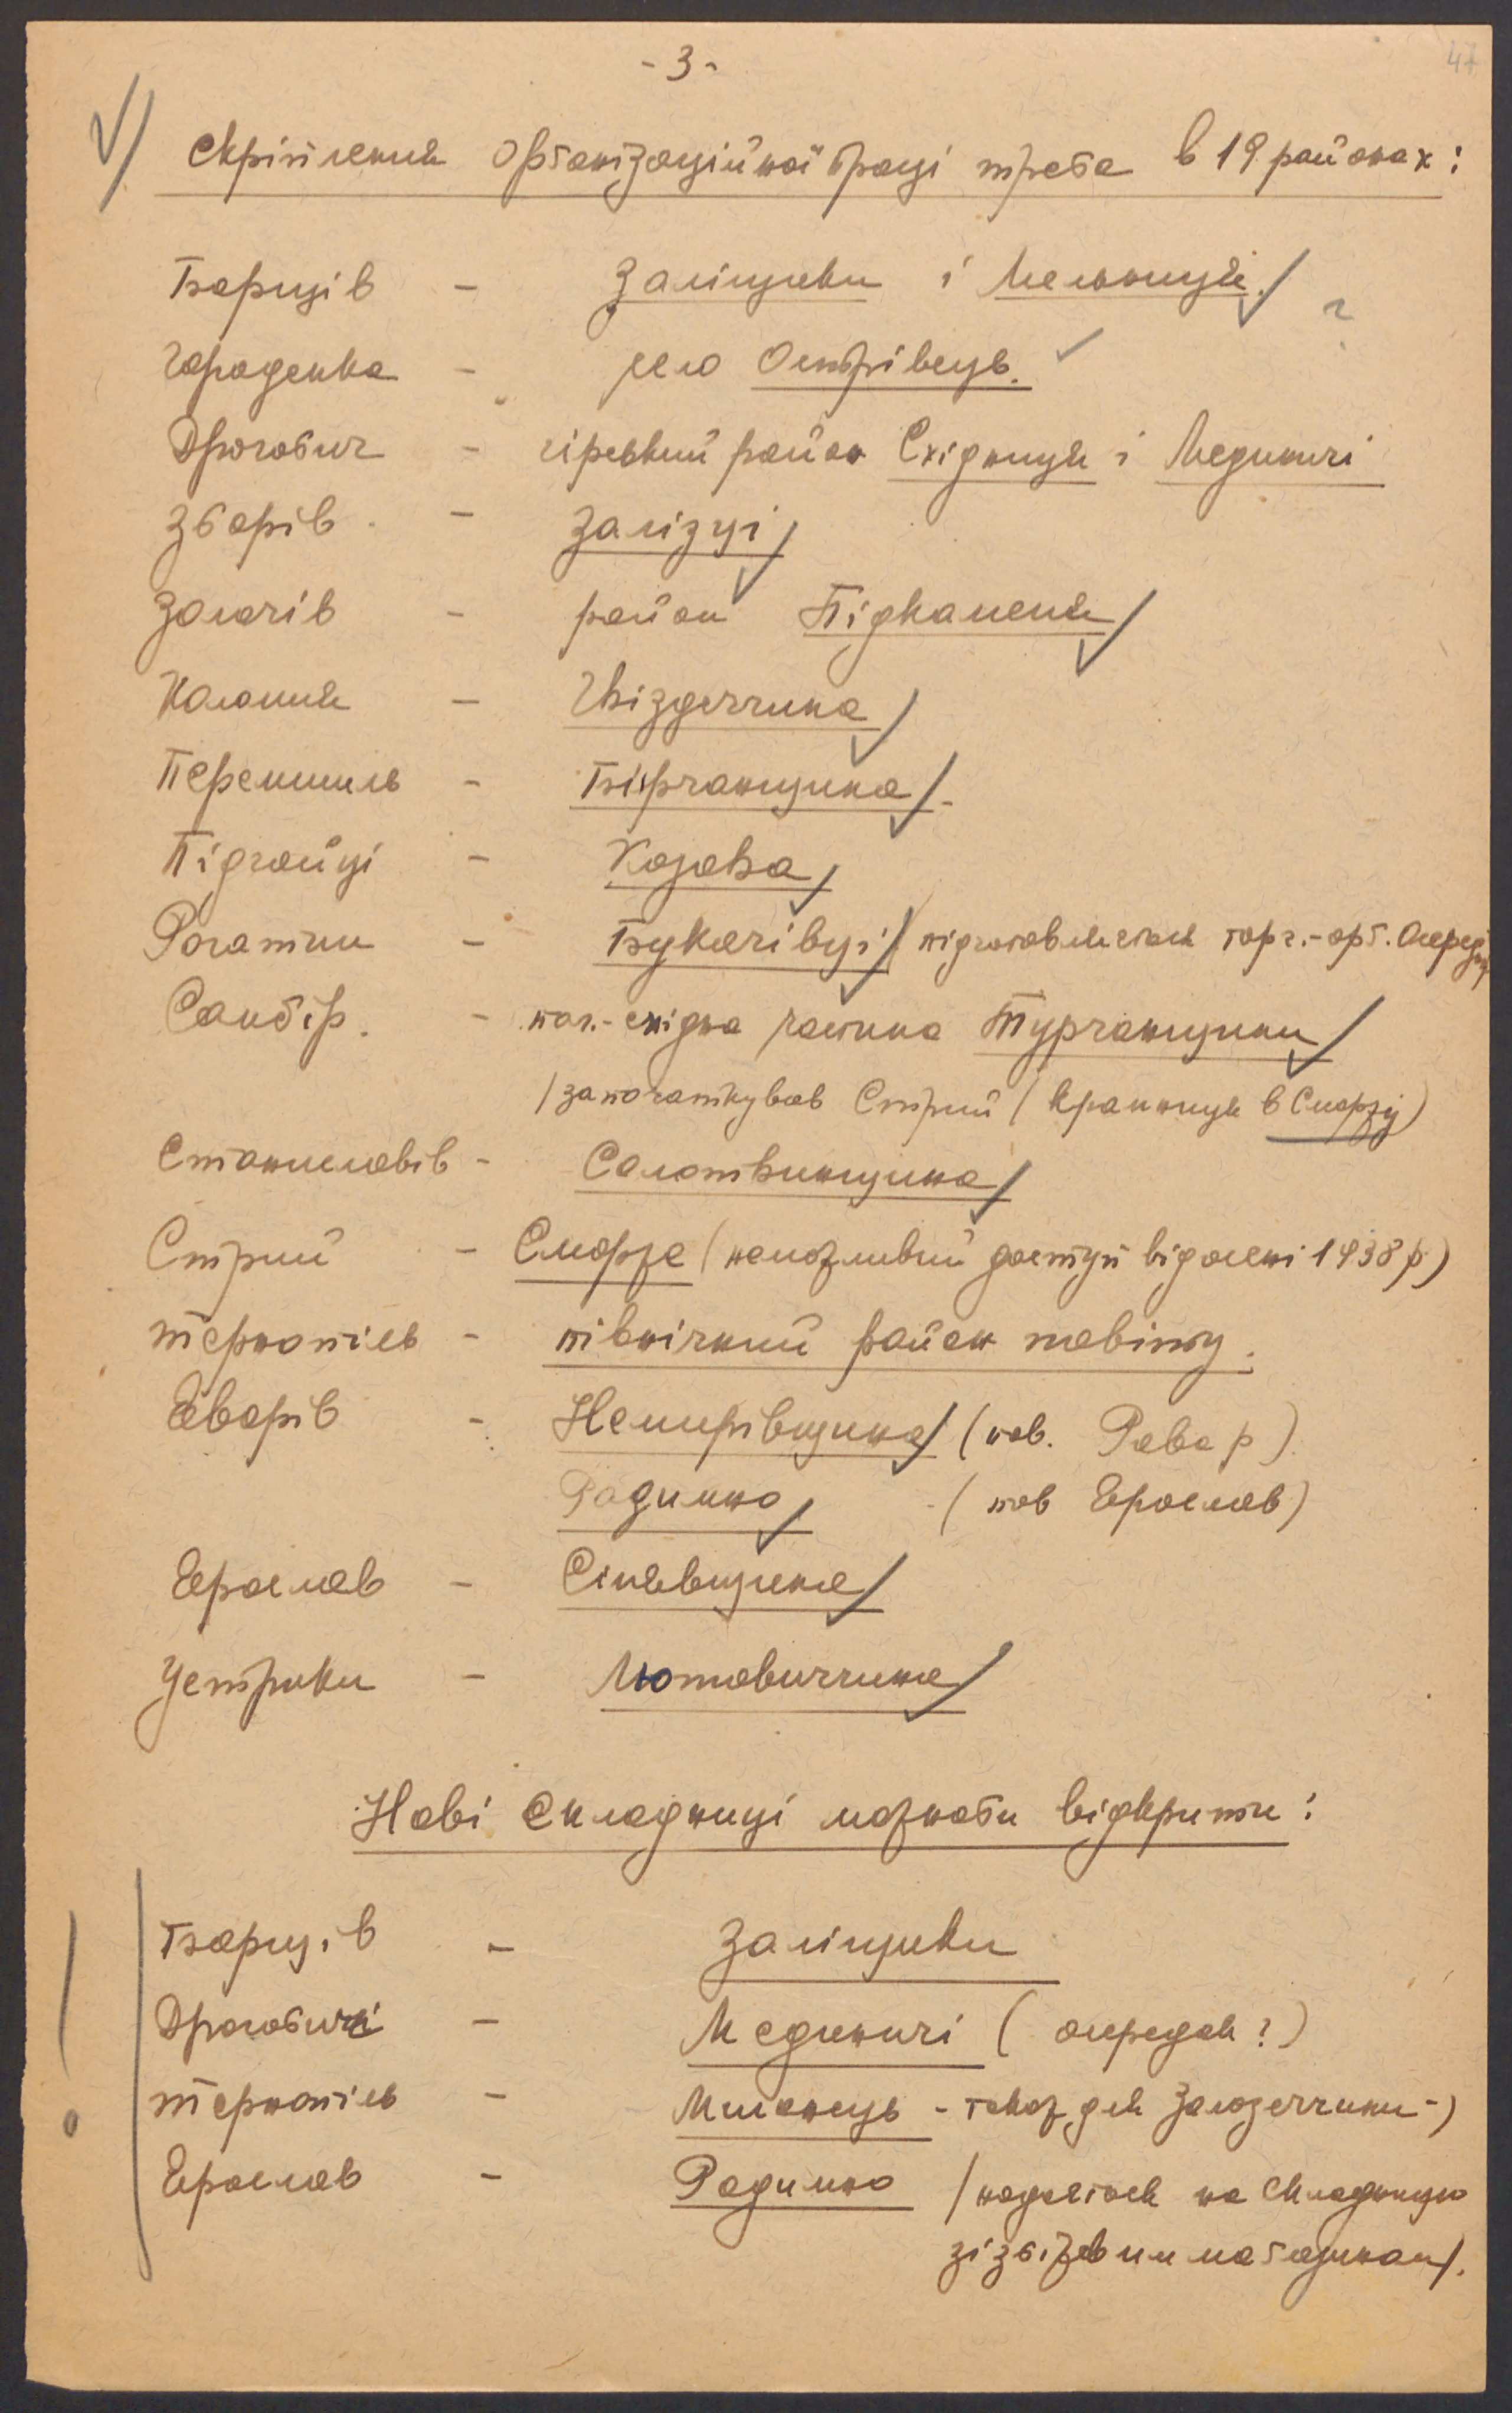 - 3 -
47
V/ Скріплення орґанізаційної праці треба в 19 районах:
Борщів - Заліщики і Мельниця. ?
Городенка - село Острівець.
Дрогобич - гірський район Східниця і Мединичі
Зборів - Залізці
Золочів - район Підкаменя
Коломия - Гвіздеччина
Перемишль - Бірчанщина
Підгайці - Козова
Рогатин - Букачівці / підготовляється торг.-орґ. Осередок
Самбір. - пол.-східна частина Турчанщини
/ започаткував Стрий / крамниця в Сможу)
Станиславів - Солотвинщина
Стрий - Сморже (неможливий доступ від осени 1938 р)
Тернопіль - північний район повіту.
Яворів - Немирівщина (пов. Рава р)
Радимно - (пов Ярослав)
Ярослав - Сінявщина
Устрики - Лютовиччина
Нові складниці можнаби відкрити:
Борщів - Заліщики
Дрогобич - Мединичі ( осередок ? )
Тернопіль - Милонець - також для Залозеччини -)
Ярослав - Радимно / надається на складницю
зі збіжевим маґазином/.